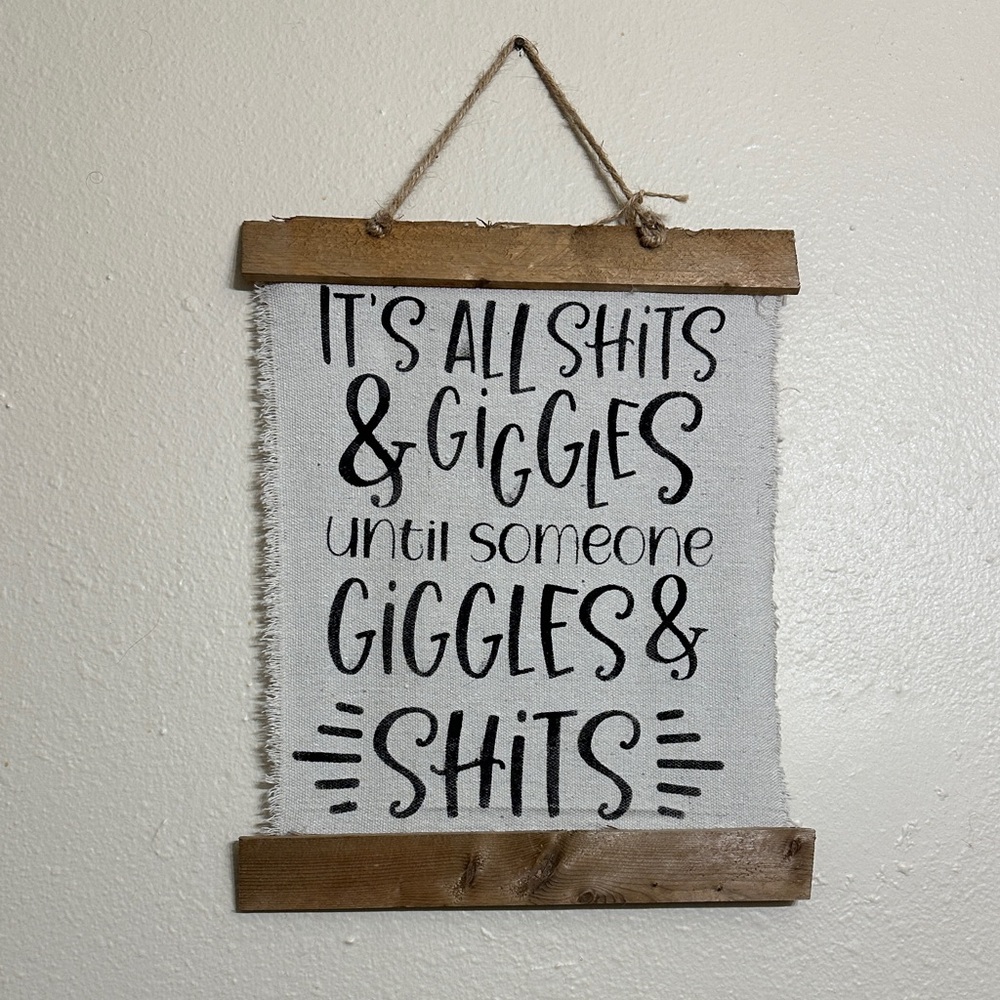 IT'S ALL SHiTS
& GiGGLES
until someone
GiGGLES &
SHiTS